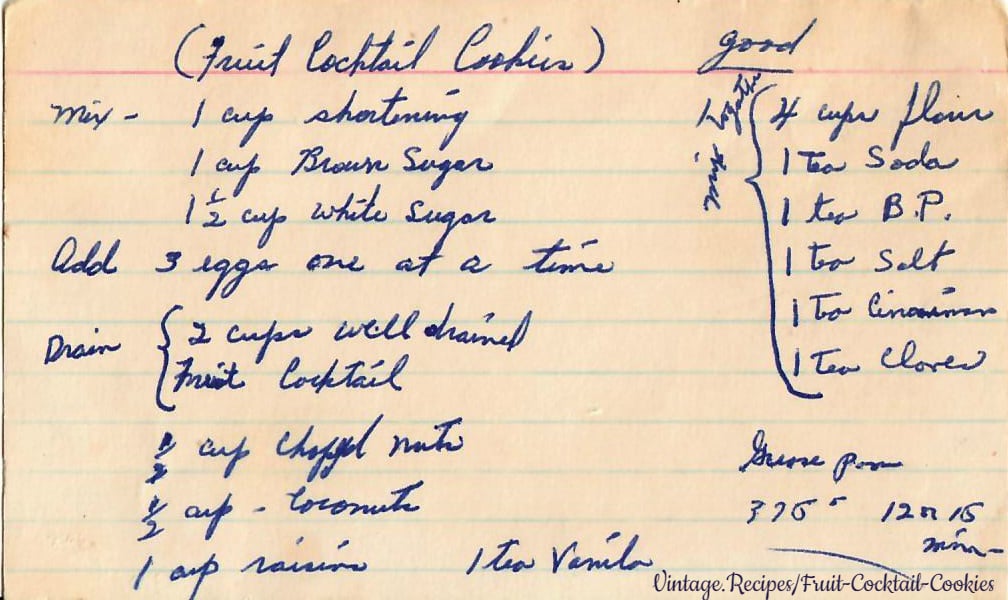 (Fruit Cocktail Cookies) good
Mix - 1 cup shortening
1 cup Brown Sugar
1 1/2 cup white Sugar
Add 3 eggs one at a time
Drain { 2 cups well drained
Fruit Cocktail
1/2 cup chopped nuts
1/2 cup - Coconuts
1 cup raisins 1 tea Vanila
together
4 cups flour
1 tea Soda
1 tea B.P.
1 tea Salt
1 tea Cinaminn
1 tea Cloves
Grease pan
375° 12 or 15
min -
Vintage.Recipes/Fruit-Cocktail-Cookies